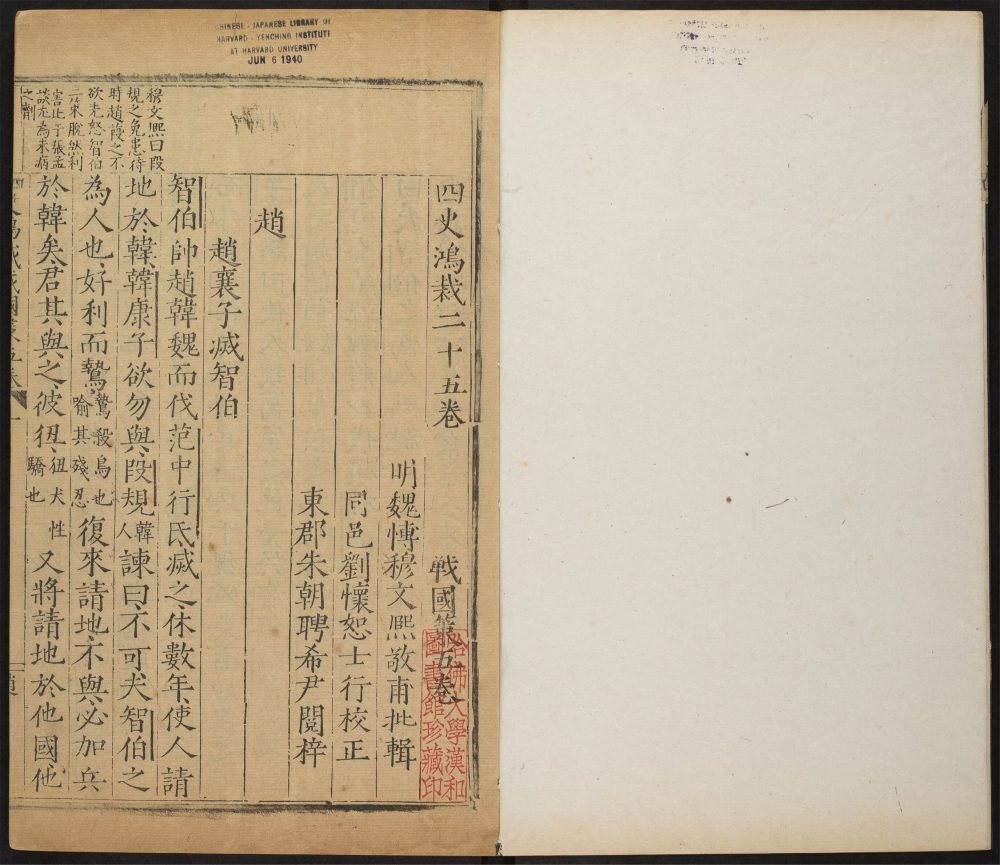 CHINESE - JAPANESE LIBRARY OF
HARVARD - YENCHING INSTITUTE
AT HARVARD UNIVERSITY
JUN 6 1940
四史鴻裁二十五卷 戰國第五卷
明魏博穆文熙敬甫批輯
同邑劉懷恕士行校正
東郡朱朝聘希尹閱梓
哈佛大學漢和
圖書館珍藏印
趙
趙襄子滅智伯
智伯帥趙韓魏而伐范中行氏滅之休數年使人請
地於韓韓康子欲勿與段規韓人諫曰不可夫智伯之
為人也好利而鷙鷙殺鳥也喻其殘忍復來請地不與必加兵
於韓矣君其與之彼狃狃犬性驕也又將請地於他國他
穆文熙曰段
規之免患待
時趙葭之不
欲先怒智伯
二策脫然利
害止于張孟
談尤為來病
之劑